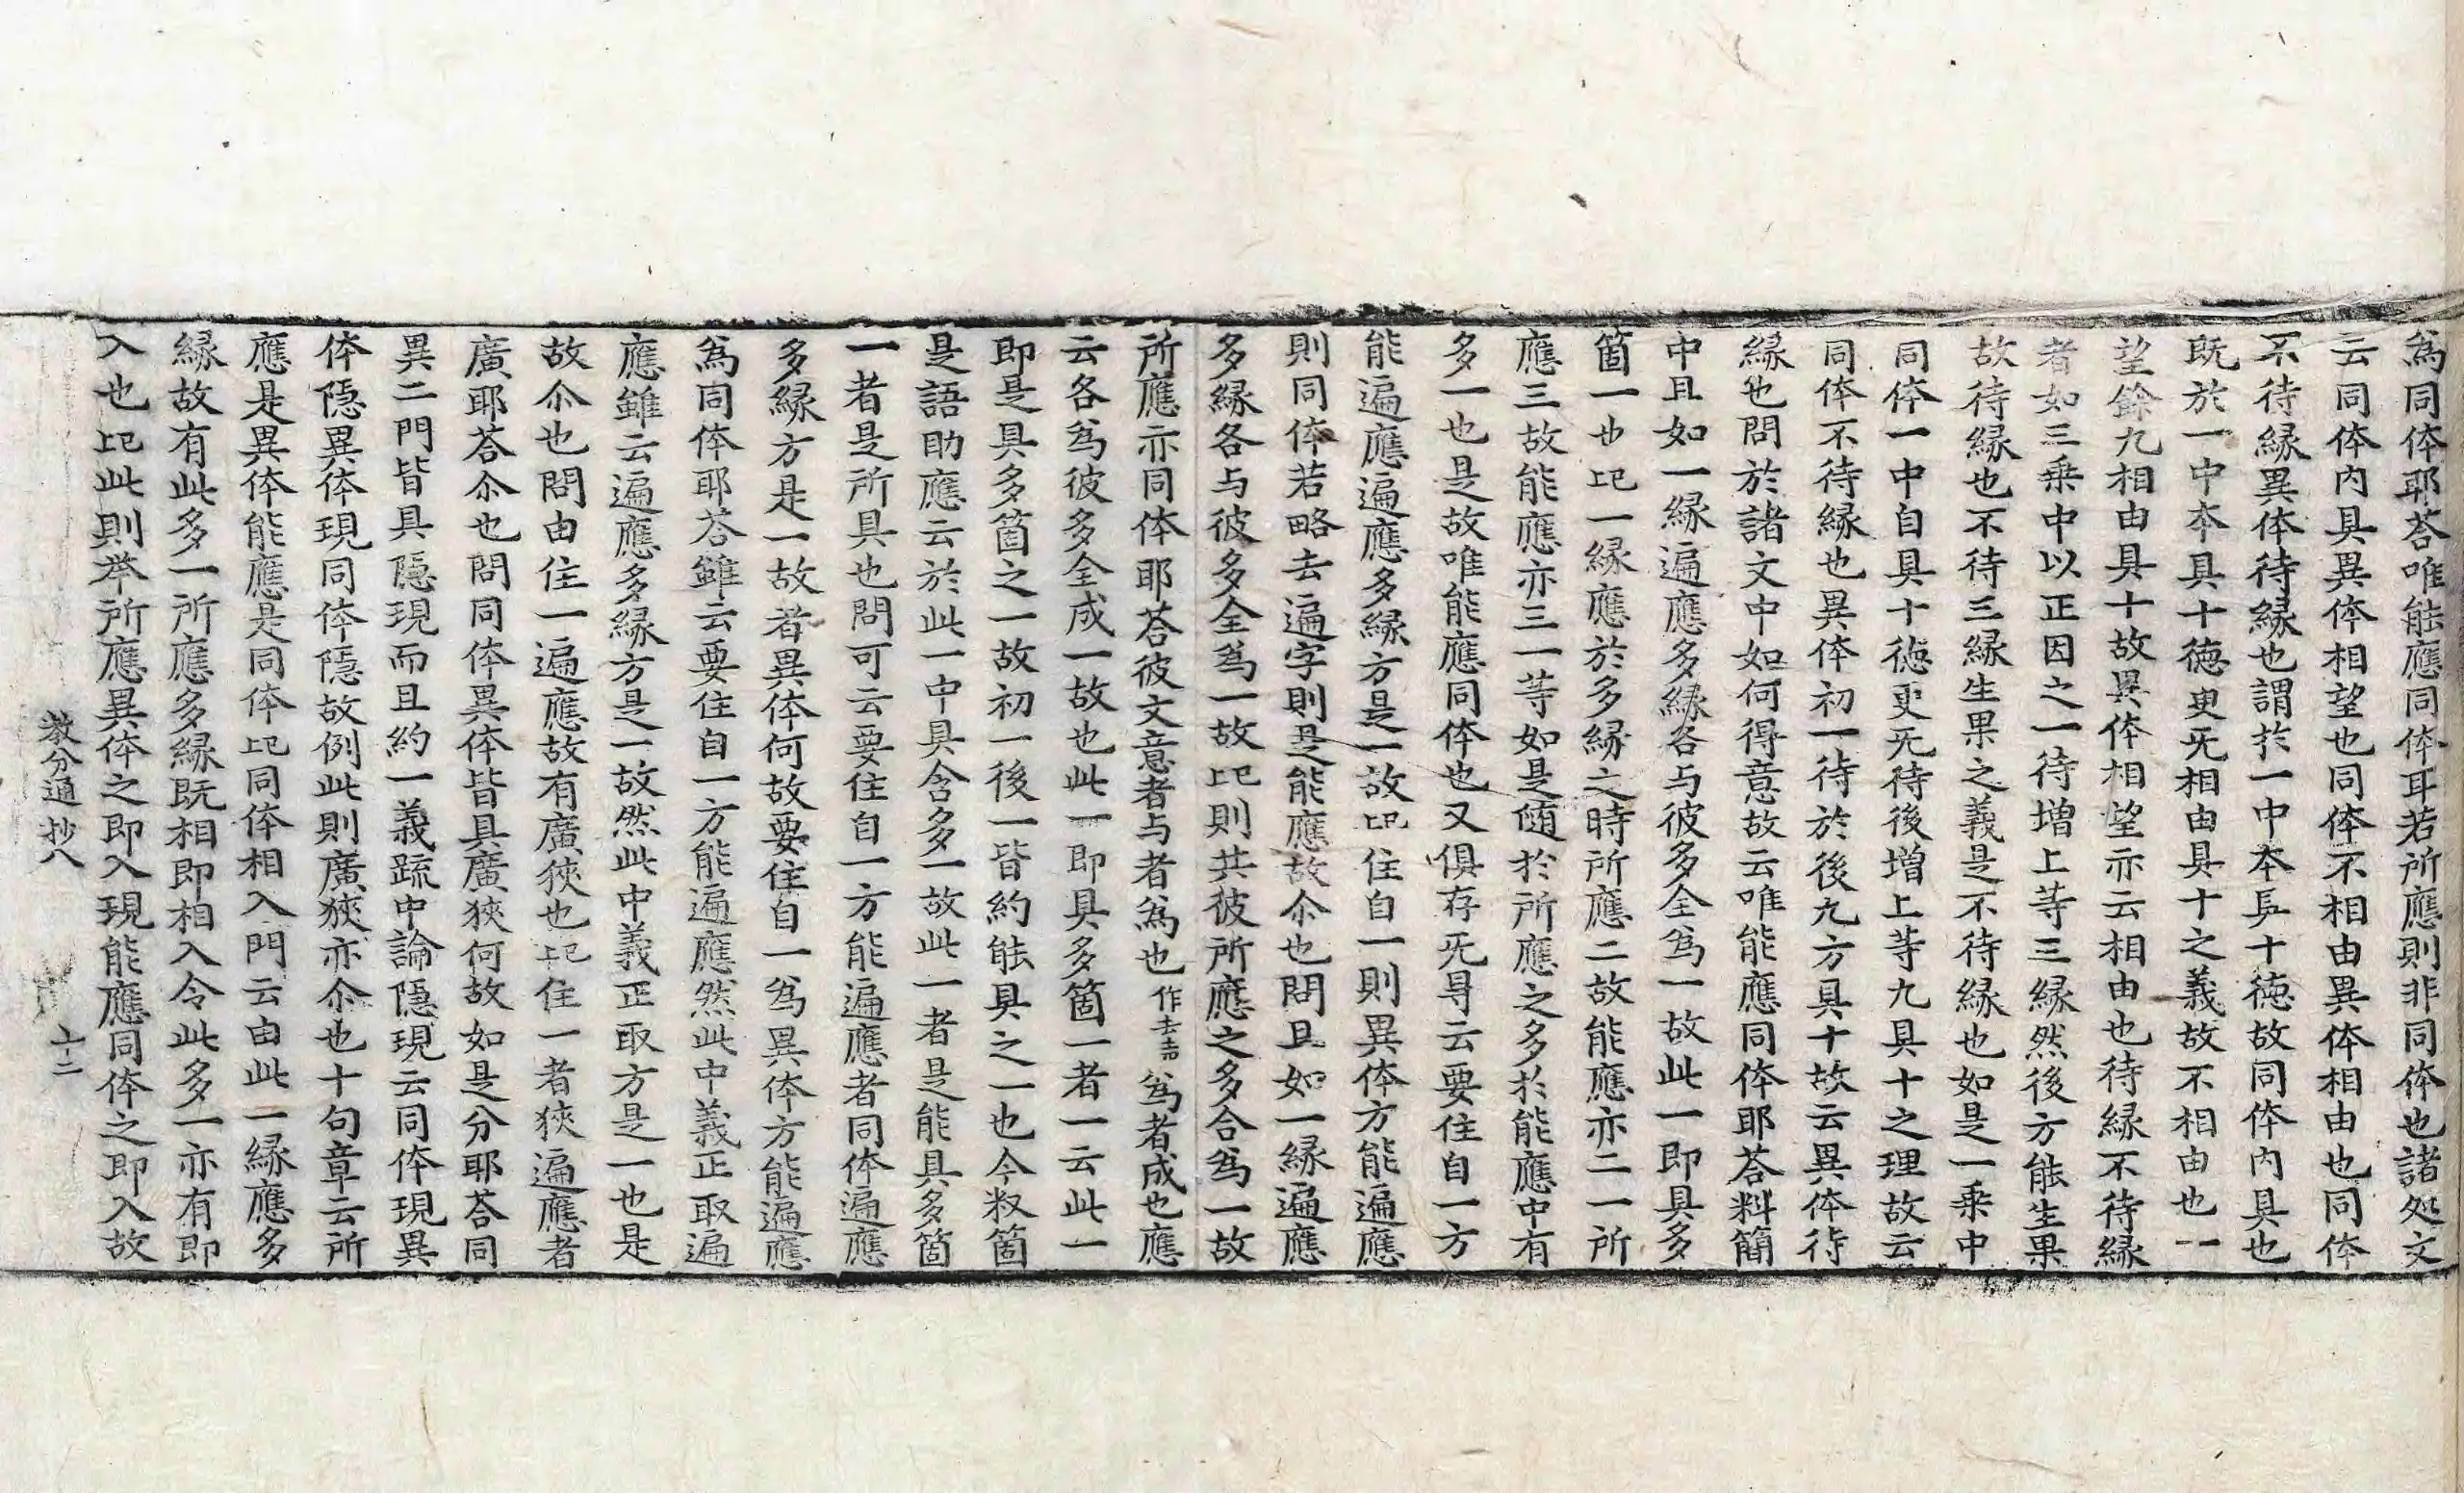 為同体耶荅唯能應同体耳若所應則非同体也諸処文
云同体内具異体相望也同体不相由異体相由也同体
不待緣異体待緣也謂於一中本具十徳故同体内具也
既於一中本具十徳更无相由具十之義故不相由也一
望餘九相由具十故異体相望亦云相由也待緣不待緣
者如三乗中以正因之一待增上等三緣然後方能生果
故待緣也不待三緣生果之義是不待緣也如是一乗中
同体一中自具十徳更无待後增上等九具十之理故云
同体不待緣也異体初一待於後九方具十故云異体待
緣也問於諸文中如何得意故云唯能應同体耶荅料簡
中且如一緣遍應多緣各与彼多全為一故此一即具多
箇一也𠯁一緣應於多緣之時所應二故能應亦二一所
應三故能應亦三一等如是随於所應之多於能應中有
多一也是故唯能應同体也又俱存无㝵云要住自一方
能遍應遍應多緣方是一故𠯁住自一則異体方能遍應
則同体若略去遍字則是能應故尒也問且如一緣遍應
多緣各与彼多全為一故𠯁則共彼所應之多合為一故
所應亦同体耶荅彼文意者与者為也作去声為者成也應
云各為彼多全成一故也此一即具多箇一者一云此一
即是具多箇之一故初一後一皆約能具之一也今釈箇
是語助應云於此一中具含多一故此一者是能具多箇
一者是所具也問可云要住自一方能遍應者同体遍應
多緣方是一故者異体何故要住自一為異体方能遍應
為同体耶荅雖云要住自一方能遍應然此中義正取遍
應雖云遍應多緣方是一故然此中義正取方是一也是
故尒也問由住一遍應故有廣狹也𠯁住一者狹遍應者
廣耶荅尒也問同体異体皆具廣狹何故如是分耶荅同
異二門皆具隱現而且約一義䟽中論隱現云同体現異
体隱異体現同体隱故例此則廣狹亦尒也十句章云所
應是異体能應是同体𠯁同体相入門云由此一緣應多
緣故有此多一所應多緣既相即相入令此多一亦有即
入也𠯁此則举所應異体之即入現能應同体之即入故
教分通抄八